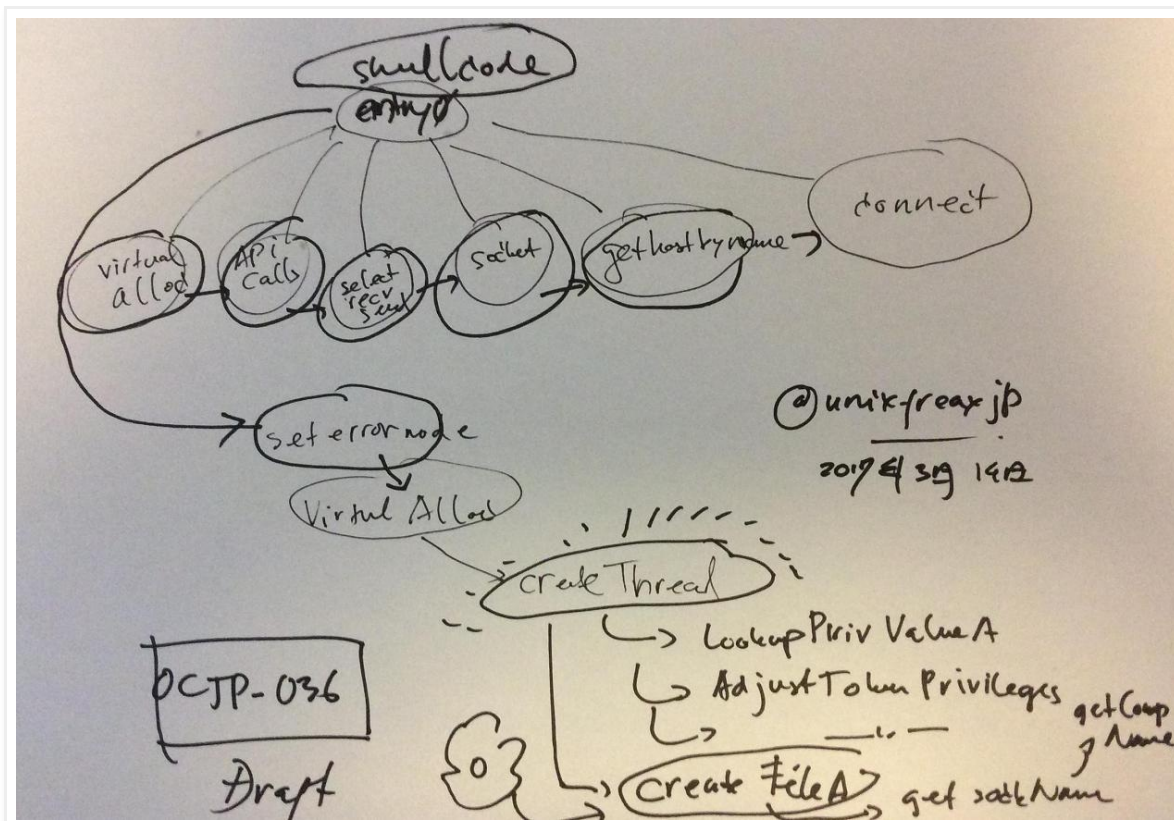 shellcode
entry0
virtual
alloc
API
calls
select
recv
send
socket
gethostbyname
connect
set error mode
Virtual Alloc
@unixfreaxjp
2017年3月14日
create Thread
LookupPrivValueA
AdjustTokenPrivileges
OCJP-036
Draft
create FileA
get sockName
getComp
Name